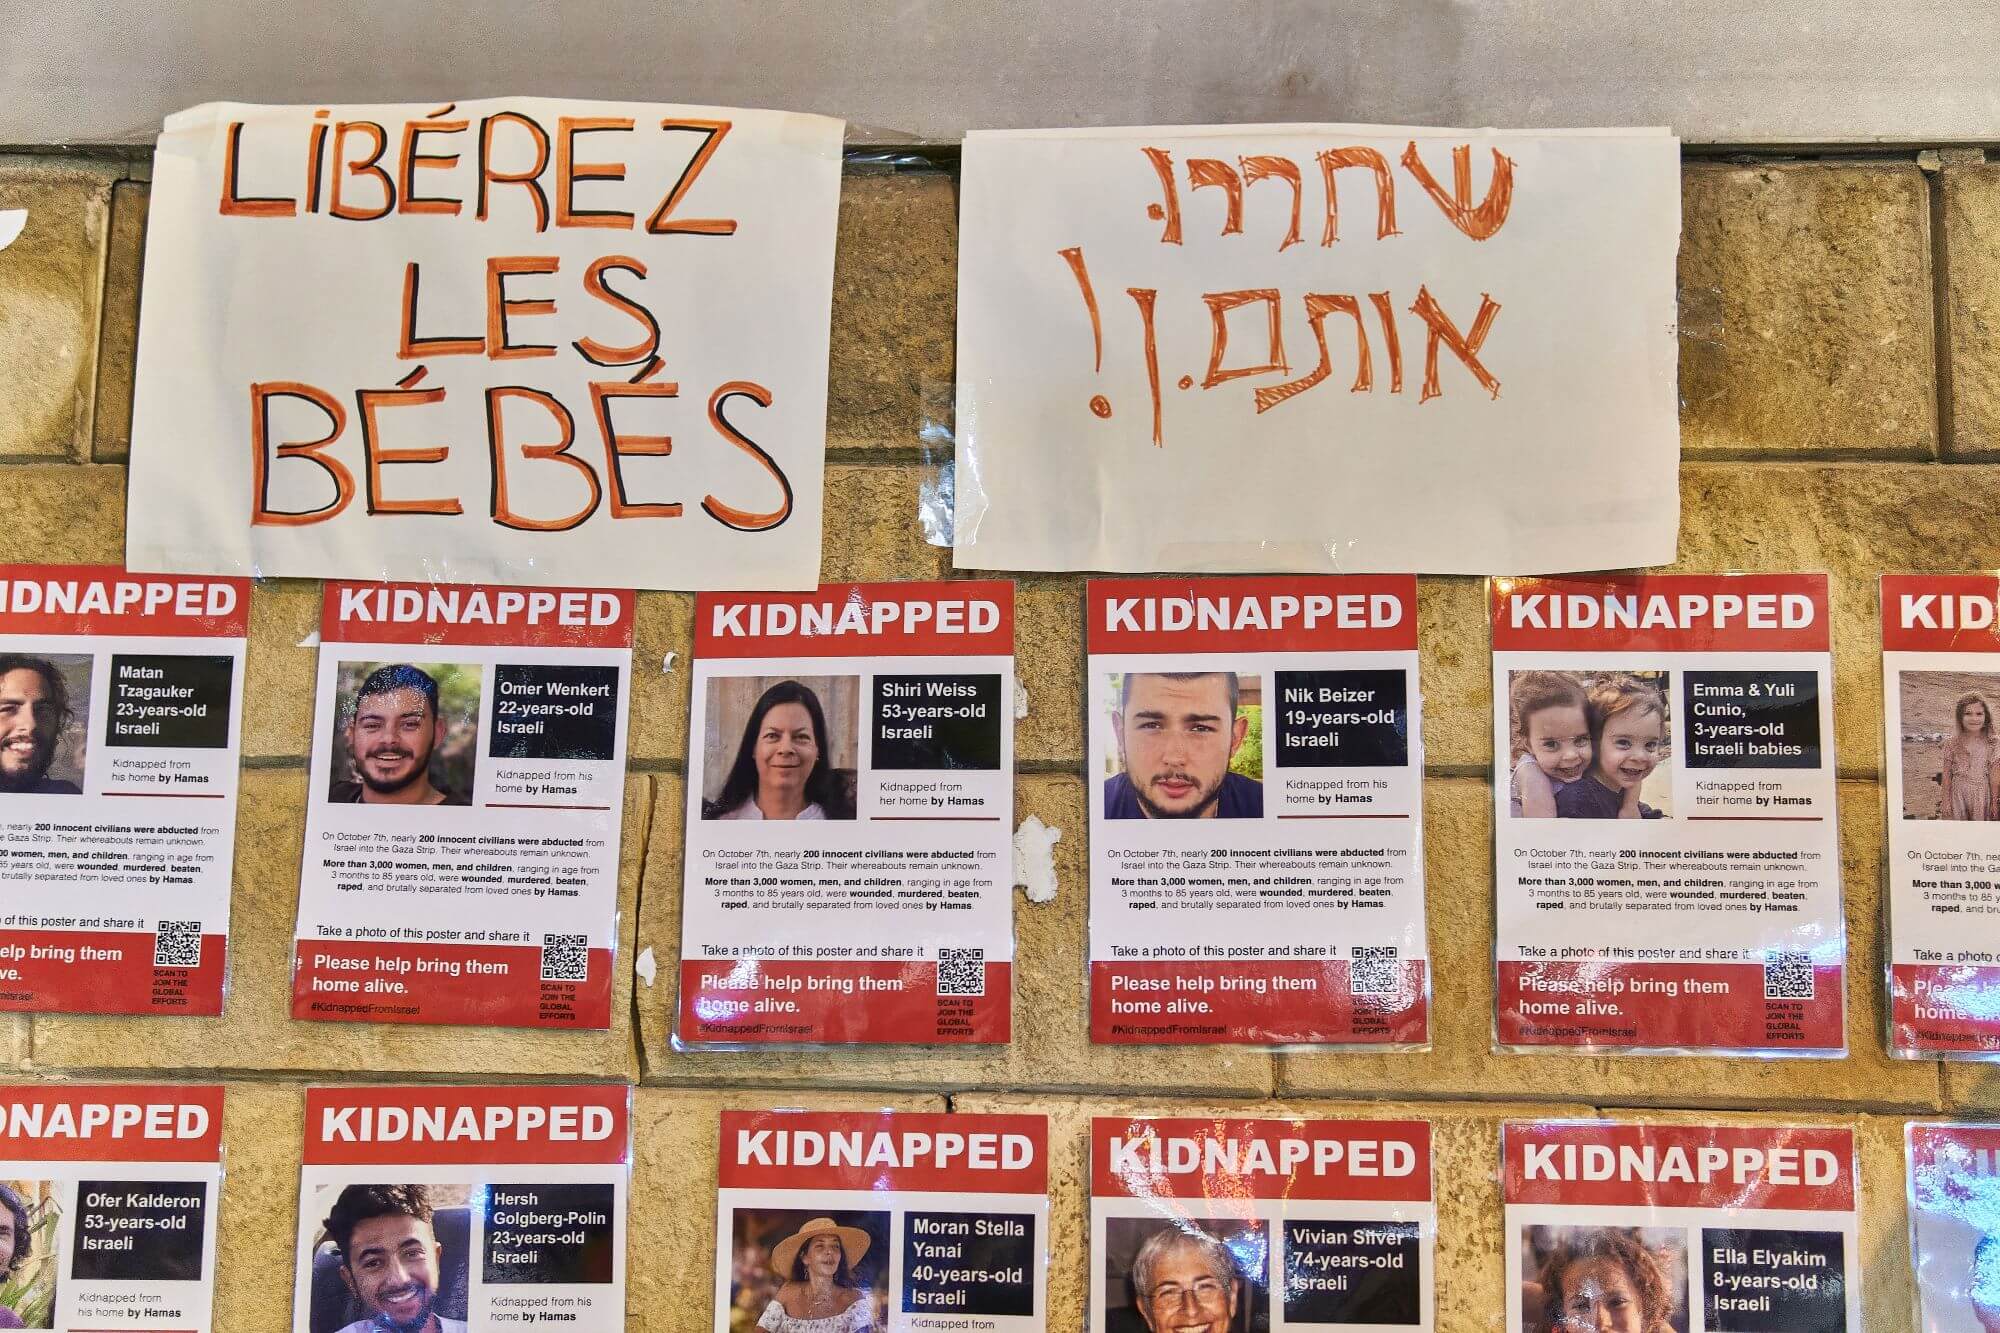 LIBÉREZ
LES
BÉBÉS
שחררו.
אותם.ן!
IDNAPPED
Matan
Tzagauker
23-years-old
Israeli
Kidnapped from
his home by Hamas
nearly 200 innocent civilians were abducted from
Gaza Strip. Their whereabouts remain unknown.
women, men, and children, ranging in age from
85 years old, were wounded, murdered, beaten,
brutally separated from loved ones by Hamas.
of this poster and share it
elp bring them
ve.
SCAN TO
JOIN THE
GLOBAL
EFFORTS
KIDNAPPED
Omer Wenkert
22-years-old
Israeli
Kidnapped from his
home by Hamas
On October 7th, nearly 200 innocent civilians were abducted from
Israel into the Gaza Strip. Their whereabouts remain unknown.
More than 3,000 women, men, and children, ranging in age from
3 months to 85 years old, were wounded, murdered, beaten,
raped, and brutally separated from loved ones by Hamas.
Take a photo of this poster and share it
Please help bring them
home alive.
#KidnappedFromIsrael
SCAN TO
JOIN THE
GLOBAL
EFFORTS
KIDNAPPED
Shiri Weiss
53-years-old
Israeli
Kidnapped from
her home by Hamas
On October 7th, nearly 200 innocent civilians were abducted from
Israel into the Gaza Strip. Their whereabouts remain unknown.
More than 3,000 women, men, and children, ranging in age from
3 months to 85 years old, were wounded, murdered, beaten,
raped, and brutally separated from loved ones by Hamas.
Take a photo of this poster and share it
Please help bring them
home alive.
#KidnappedFromIsrael
SCAN TO
JOIN THE
GLOBAL
EFFORTS
KIDNAPPED
Nik Beizer
19-years-old
Israeli
Kidnapped from his
home by Hamas
On October 7th, nearly 200 innocent civilians were abducted from
Israel into the Gaza Strip. Their whereabouts remain unknown.
More than 3,000 women, men, and children, ranging in age from
3 months to 85 years old, were wounded, murdered, beaten,
raped, and brutally separated from loved ones by Hamas.
Take a photo of this poster and share it
Please help bring them
home alive.
#KidnappedFromIsrael
SCAN TO
JOIN THE
GLOBAL
EFFORTS
KIDNAPPED
Emma & Yuli
Cunio,
3-years-old
Israeli babies
Kidnapped from
their home by Hamas
On October 7th, nearly 200 innocent civilians were abducted from
Israel into the Gaza Strip. Their whereabouts remain unknown.
More than 3,000 women, men, and children, ranging in age from
3 months to 85 years old, were wounded, murdered, beaten,
raped, and brutally separated from loved ones by Hamas.
Take a photo of this poster and share it
Please help bring them
home alive.
#KidnappedFromIsrael
SCAN TO
JOIN THE
GLOBAL
EFFORTS
KID
On October 7th, nea
Israel
More than 3,000 w
3 months to 85 y
raped, and bru
Take a photo o
Please h
home
DNAPPED
Ofer Kalderon
53-years-old
Israeli
Kidnapped from
his home by Hamas
KIDNAPPED
Hersh
Golgberg-Polin
23-years-old
Israeli
Kidnapped from his
home by Hamas
KIDNAPPED
Moran Stella
Yanai
40-years-old
Israeli
Kidnapped from
KIDNAPPED
Vivian Silver
74-years-old
Israeli
KIDNAPPED
Ella Elyakim
8-years-old
Israeli